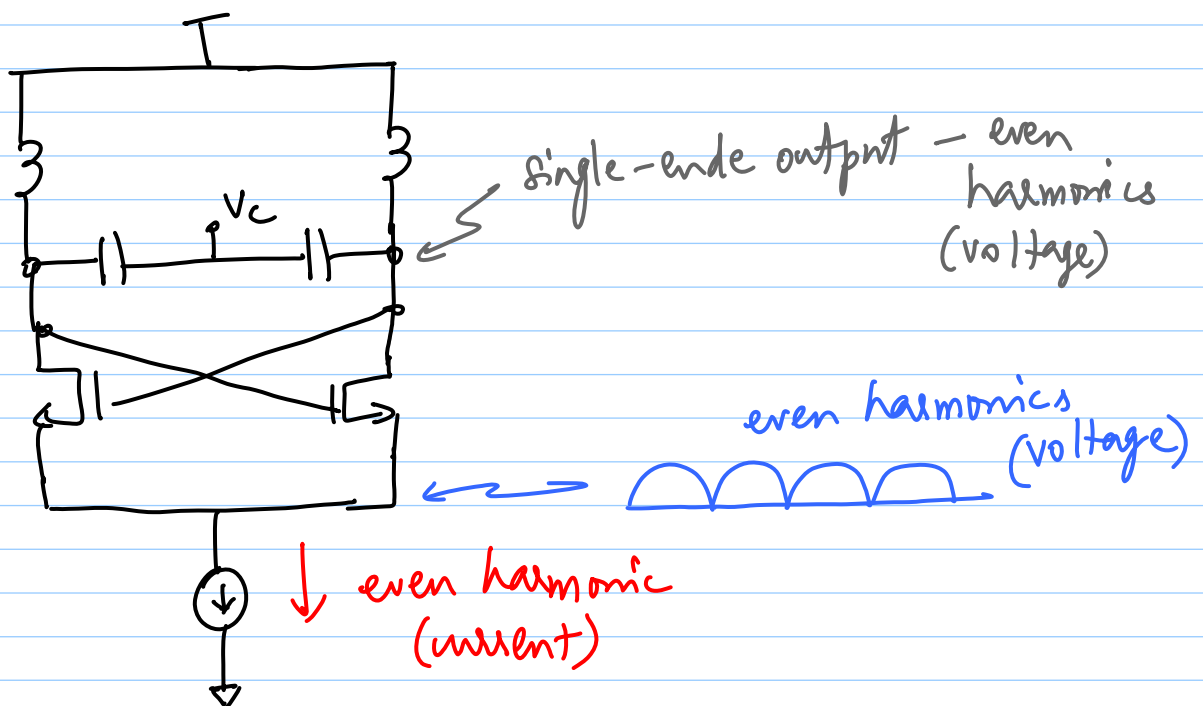 single-ende output — even
harmonics
(voltage)
Vc
even harmonics
(voltage)
even harmonic
(current)